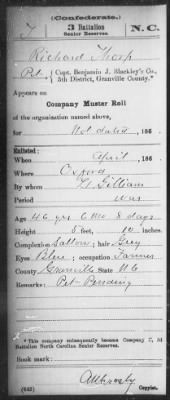 (Confederate.)
T 3 Battalion N.C.
Senior Reserves.
Richard Thorp
Pvt., Capt. Benjamin J. Blackley's Co., 5th District, Granville County.*
Appears on
Company Muster Roll
of the organization named above,
for Not dated, 186 .
Enlisted:
When April, 186 .
Where Oxford
By whom Gilliam
Period war
Age 46 yrs 6 mo 8 days
Height 5 feet, 10 inches.
Complexion Sallow; hair Grey
Eyes Blue; occupation Farmer
County Granville State NC
Remarks: Pet- Pending
* This company subsequently became Company C, 3d Battalion North Carolina Senior Reserves.
Book mark:
(642) Copyist.